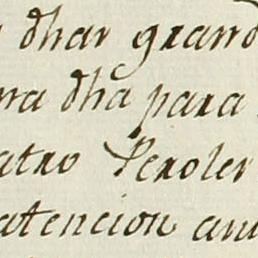 dhar grand
na dhã para
atro Peroler
atencion am